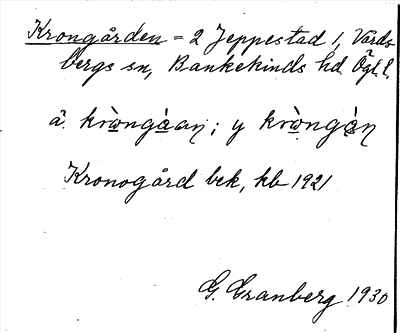 Krongården = 2 Jeppestad 1, Vårds-
bergs sn, Bankekinds hd. Ögl.
ä. kròngàan; y kròngàn
Kronogård bek, kb 1921
G. Granberg 1930